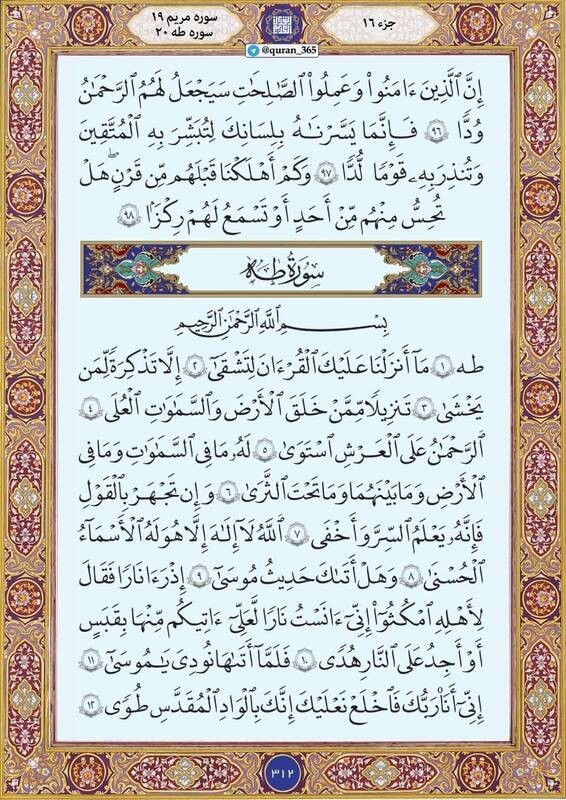 سوره مریم ۱۹
سوره طه ۲۰
جزء ۱۶
@quran_365
إِنَّ ٱلَّذِينَ ءَامَنُوا۟ وَعَمِلُوا۟ ٱلصَّٰلِحَٰتِ سَيَجْعَلُ لَهُمُ ٱلرَّحْمَٰنُ
وُدًّا ٩٦ فَإِنَّمَا يَسَّرْنَٰهُ بِلِسَانِكَ لِتُبَشِّرَ بِهِ ٱلْمُتَّقِينَ
وَتُنذِرَ بِهِۦ قَوْمًا لُّدًّا ٩٧ وَكَمْ أَهْلَكْنَا قَبْلَهُم مِّن قَرْنٍ هَلْ
تُحِسُّ مِنْهُم مِّنْ أَحَدٍ أَوْ تَسْمَعُ لَهُمْ رِكْزًۢا ٩٨
سُورَةُ طه
بِسْمِ ٱللَّهِ ٱلرَّحْمَٰنِ ٱلرَّحِيمِ
طه ١ مَآ أَنزَلْنَا عَلَيْكَ ٱلْقُرْءَانَ لِتَشْقَىٰٓ ٢ إِلَّا تَذْكِرَةً لِّمَن
يَخْشَىٰ ٣ تَنزِيلًا مِّمَّنْ خَلَقَ ٱلْأَرْضَ وَٱلسَّمَٰوَٰتِ ٱلْعُلَى ٤
ٱلرَّحْمَٰنُ عَلَى ٱلْعَرْشِ ٱسْتَوَىٰ ٥ لَهُۥ مَا فِى ٱلسَّمَٰوَٰتِ وَمَا فِى
ٱلْأَرْضِ وَمَا بَيْنَهُمَا وَمَا تَحْتَ ٱلثَّرَىٰ ٦ وَإِن تَجْهَرْ بِٱلْقَوْلِ
فَإِنَّهُۥ يَعْلَمُ ٱلسِّرَّ وَأَخْفَى ٧ ٱللَّهُ لَآ إِلَٰهَ إِلَّا هُوَ لَهُ ٱلْأَسْمَآءُ
ٱلْحُسْنَىٰ ٨ وَهَلْ أَتَىٰكَ حَدِيثُ مُوسَىٰٓ ٩ إِذْ رَءَا نَارًا فَقَالَ
لِأَهْلِهِ ٱمْكُثُوٓا۟ إِنِّىٓ ءَانَسْتُ نَارًا لَّعَلِّىٓ ءَاتِيكُم مِّنْهَا بِقَبَسٍ
أَوْ أَجِدُ عَلَى ٱلنَّارِ هُدًى ١٠ فَلَمَّآ أَتَىٰهَا نُودِىَ يَٰمُوسَىٰٓ ١١
إِنِّىٓ أَنَا۠ رَبُّكَ فَٱخْلَعْ نَعْلَيْكَ إِنَّكَ بِٱلْوَادِ ٱلْمُقَدَّسِ طُوًى ١٢
۳۱۲